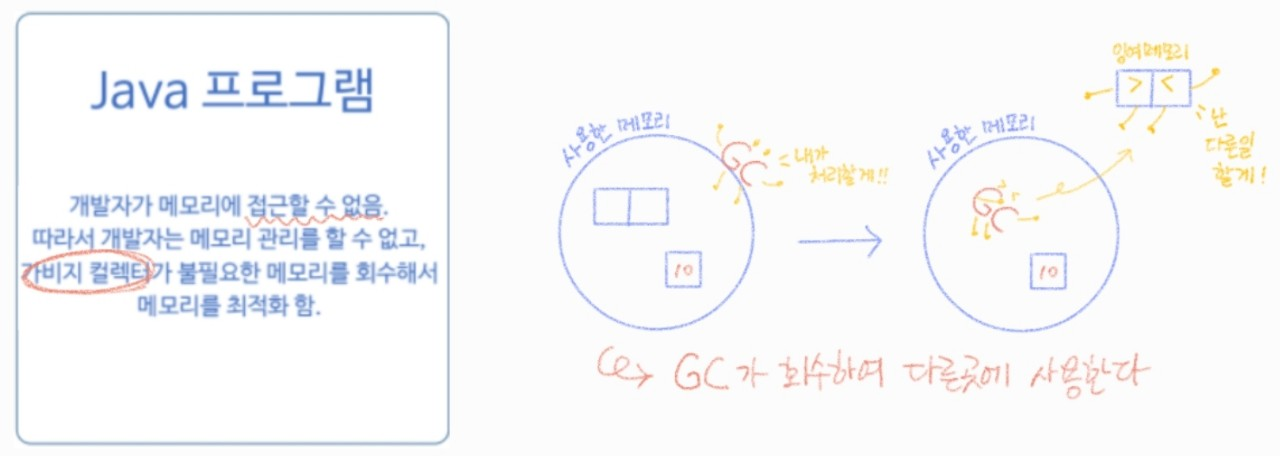 Java 프로그램
개발자가 메모리에 접근할 수 없음.
따라서 개발자는 메모리 관리를 할 수 없고,
가비지 컬렉터가 불필요한 메모리를 회수해서
메모리를 최적화 함.
사용한 메모리
GC
내가
처리할게!!
10
사용한 메모리
GC
10
잉여메모리
> <
난
다른일
할게!
GC가 회수하여 다른곳에 사용한다